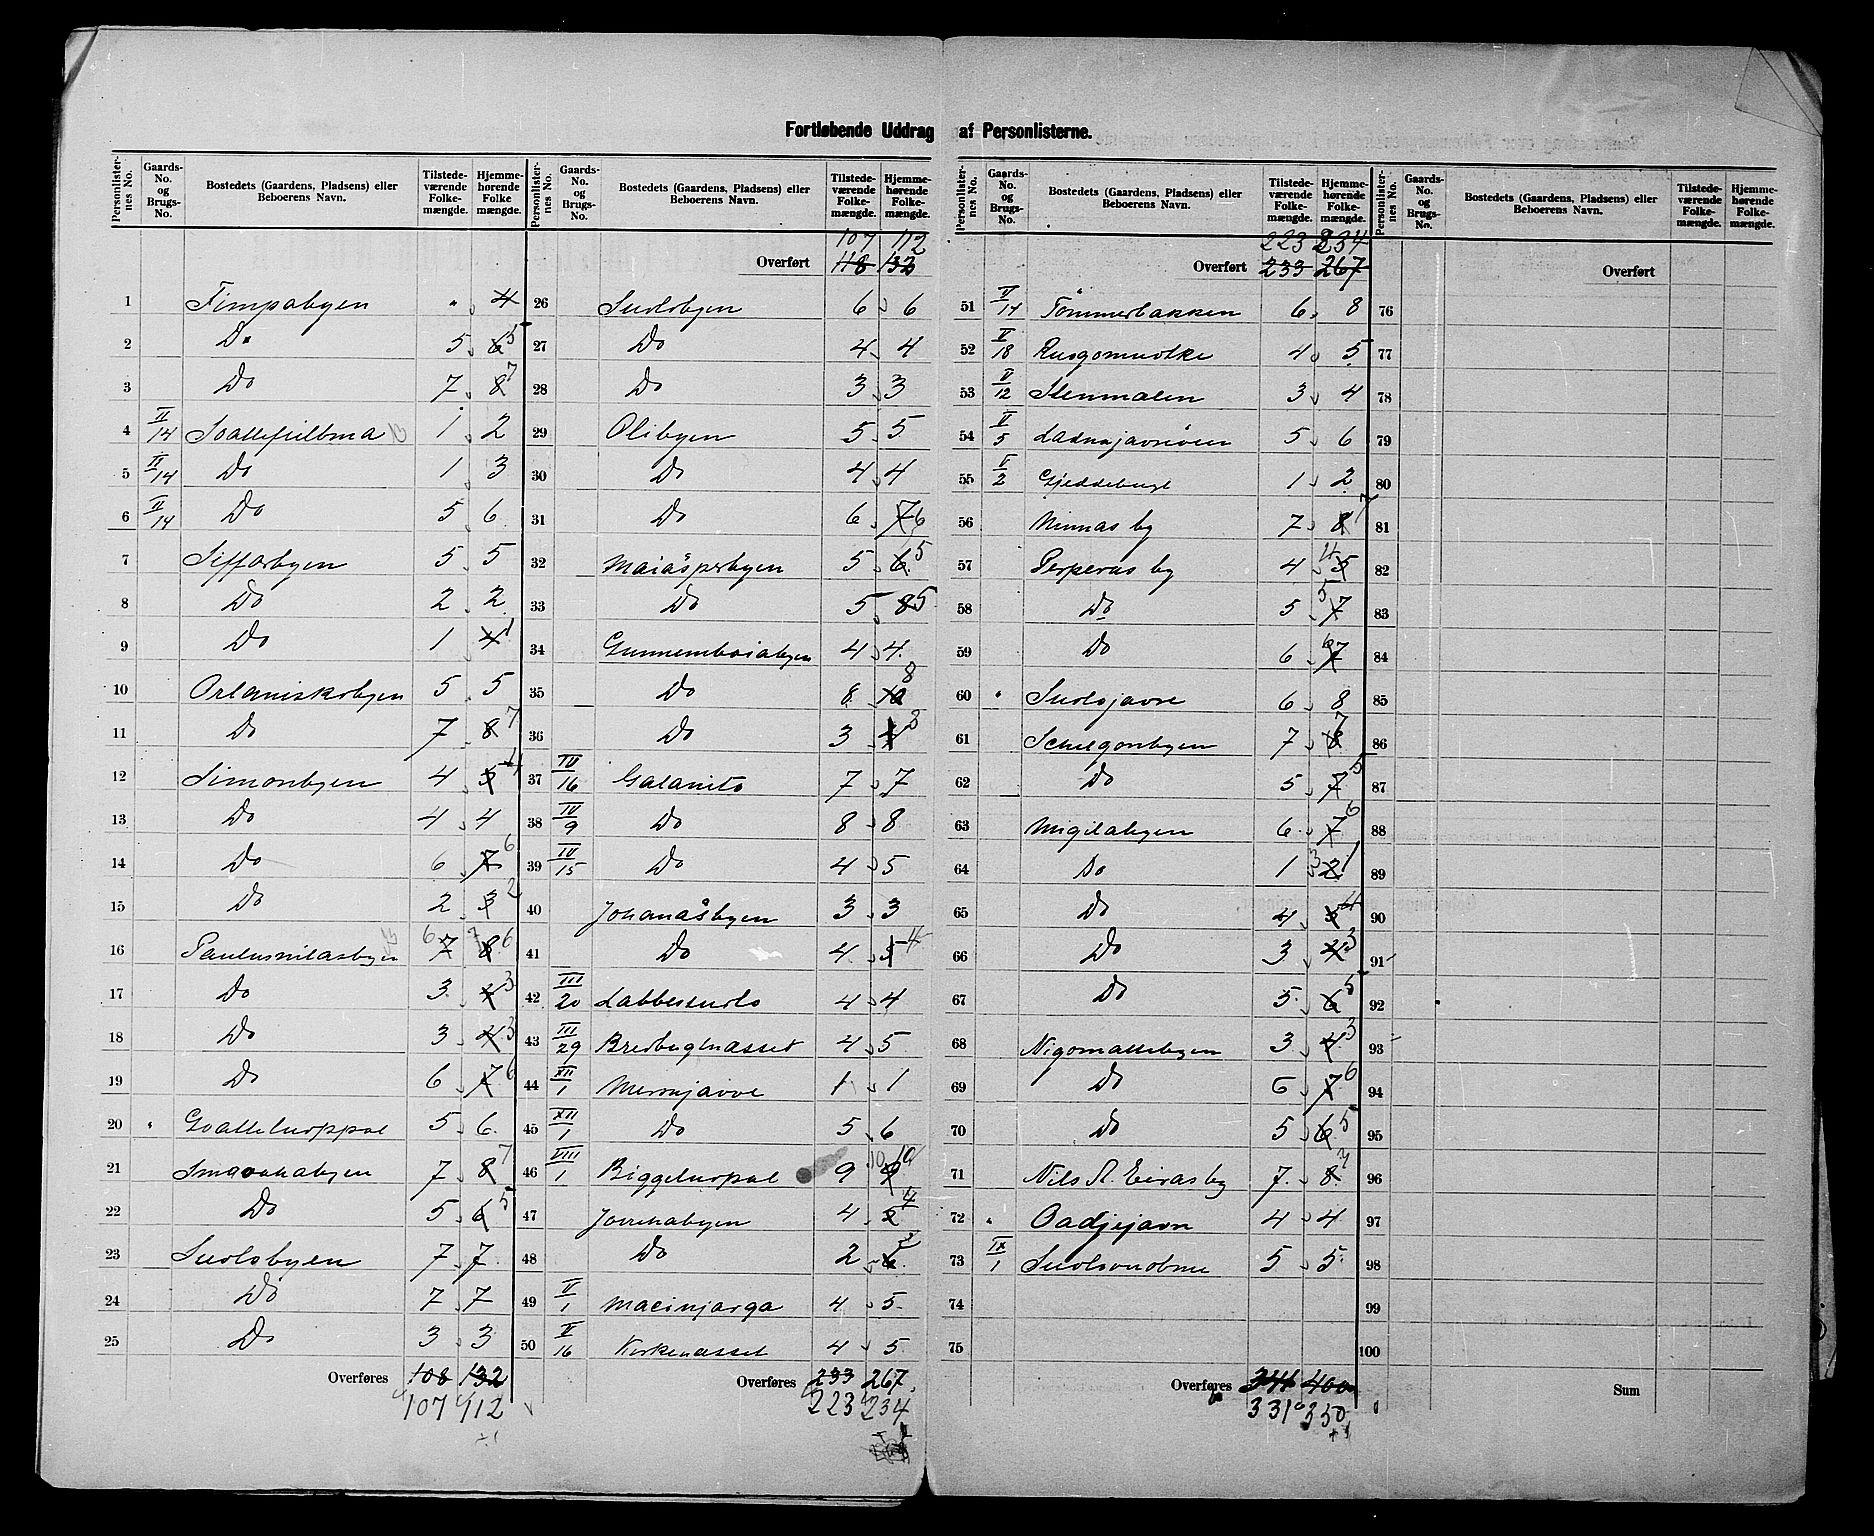 Fortløbende Uddrag af Personlisterne.
Personlister-nes No. Gaards-No. og Brugs-No. Bostedets (Gaardens, Pladsens) eller Beboerens Navn. Tilstede-værende Folke-mængde. Hjemme-hørende Folke mængde.
1 Fimpabyen " 4
2 Do 5 6 5
3 Do 7 8 7
4 II/14 Soattefielbma 1 2
5 II/14 Do 1 3
6 II/14 Do 5 6
7 Siffarbyen 5 5
8 Do 2 2
9 Do 1 4 1
10 Orlaniskobyen 5 5
11 Do 7 8 7
12 Simonbyen 4 5 4
13 Do 4 4
14 Do 6 7 6
15 Do 2 3 2
16 Paulusnilasbyen 6 7 7 8 6
17 Do 3 4 3
18 Do 3 4 3
19 Do 6 7 6
20 " Goatteluoppal 5 6
21 Smaoohabyen 7 8 7
22 Do 5 6 5
23 Suolobyen 7 7
24 Do 7 7
25 Do 3 3
Overføres 108 132
107 112
+1
Personlister-nes No. Gaards-No. og Brugs-No. Bostedets (Gaardens, Pladsens) eller Beboerens Navn. Tilstede-værende Folke-mængde. Hjemme-hørende Folke-mængde.
107 112
Overført 118 132
26 Suolobyen 6 6
27 Do 4 4
28 Do 3 3
29 Olibyen 5 5
30 Do 4 4
31 Do 6 7 6
32 Maiåsprbyen 5 6 5
33 Do 5 8 5
34 Gunnemboiabyen 4 4
35 Do 8 10 8
36 Do 3 4 3
37 IV/16 Galanito 7 7
38 IV/9 Do 8 8
39 IV/15 Do 4 5
40 Johanåsbyen 3 3
41 Do 4 5 4
42 III/20 Labbesuolo 4 4
43 III/29 Bredbugtnæsset 4 5
44 XII/1 Mernjavve 1 1
45 XII/1 Do 5 6
46 VIII/1 Biggeluopal 9 10 9 10
47 Jovnabyen 4 2 4
48 Do 2 6 2
49 V/1 Macinjarga 4 5
50 V/16 Kirkenæsset 4 5
Overføres 233 267
223 234
Personlister-nes No. Gaards-No. og Brugs-No. Bostedets (Gaardens, Pladsens) eller Beboerens Navn. Tilstede-værende Folke-mængde. Hjemme-hørende Folke-mængde.
223 234
Overført 233 267
51 V/14 Tömmerbakken 6 8
52 V/18 Rusgomuotke 4 5
53 V/12 Stenmalen 3 4
54 V/5 Ladnajavreöien 5 6
55 V/2 Gjeddebugt 1 2
56 Ninnas by 7 8 7
57 Perperas by 4 4 5
58 Do 5 5 7
59 Do 6 6 7
60 " Suolojavre 6 8
61 Schulgonbyen 7 8 7
62 Do 5 7 5
63 Migilabyen 6 7 6
64 Do 1 3 2 1
65 Do 4 5 4
66 Do 3 4 3
67 Do 5 6 5
68 Nigomattebyen 3 4 3
69 Do 6 7 6
70 Do 5 6 5
71 Nils A. Eirasby 7 8 7
72 " Oadjejavn 4 4
73 IX/1 Suolovuobme 5 5
74
75
Overføres 344 400
331 350
+1
Personlister-nes No. Gaards-No. og Brugs-No. Bostedets (Gaardens, Pladsens) eller Beboerens Navn. Tilstede-værende Folke-mængde. Hjemme-hørende Folke-mængde.
Overført
76
77
78
79
80
81
82
83
84
85
86
87
88
89
90
91
92
93
94
95
96
97
98
99
100
Sum